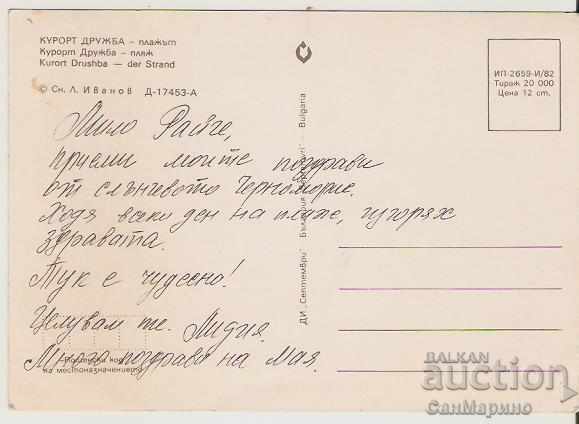 КУРОРТ ДРУЖБА – плажът
Курорт Дружба – пляж
Kurort Drushba — der Strand
© Сн. Л. Иванов Д-17453-А
ИП-2659-И/82
Тираж 20 000
Цена 12 ст.
Мило Райче,
приеми моите поздрави
от слънчевото Черноморие.
Ходя всеки ден на плаж,
здравата.
Тук е чудесно!
Целувам те. Лидия.
Много поздрави на Мая.
Пощенски код
на местоназначението
ДИ „Септември" България Bulgaria
BALKAN
auction
СанМарино